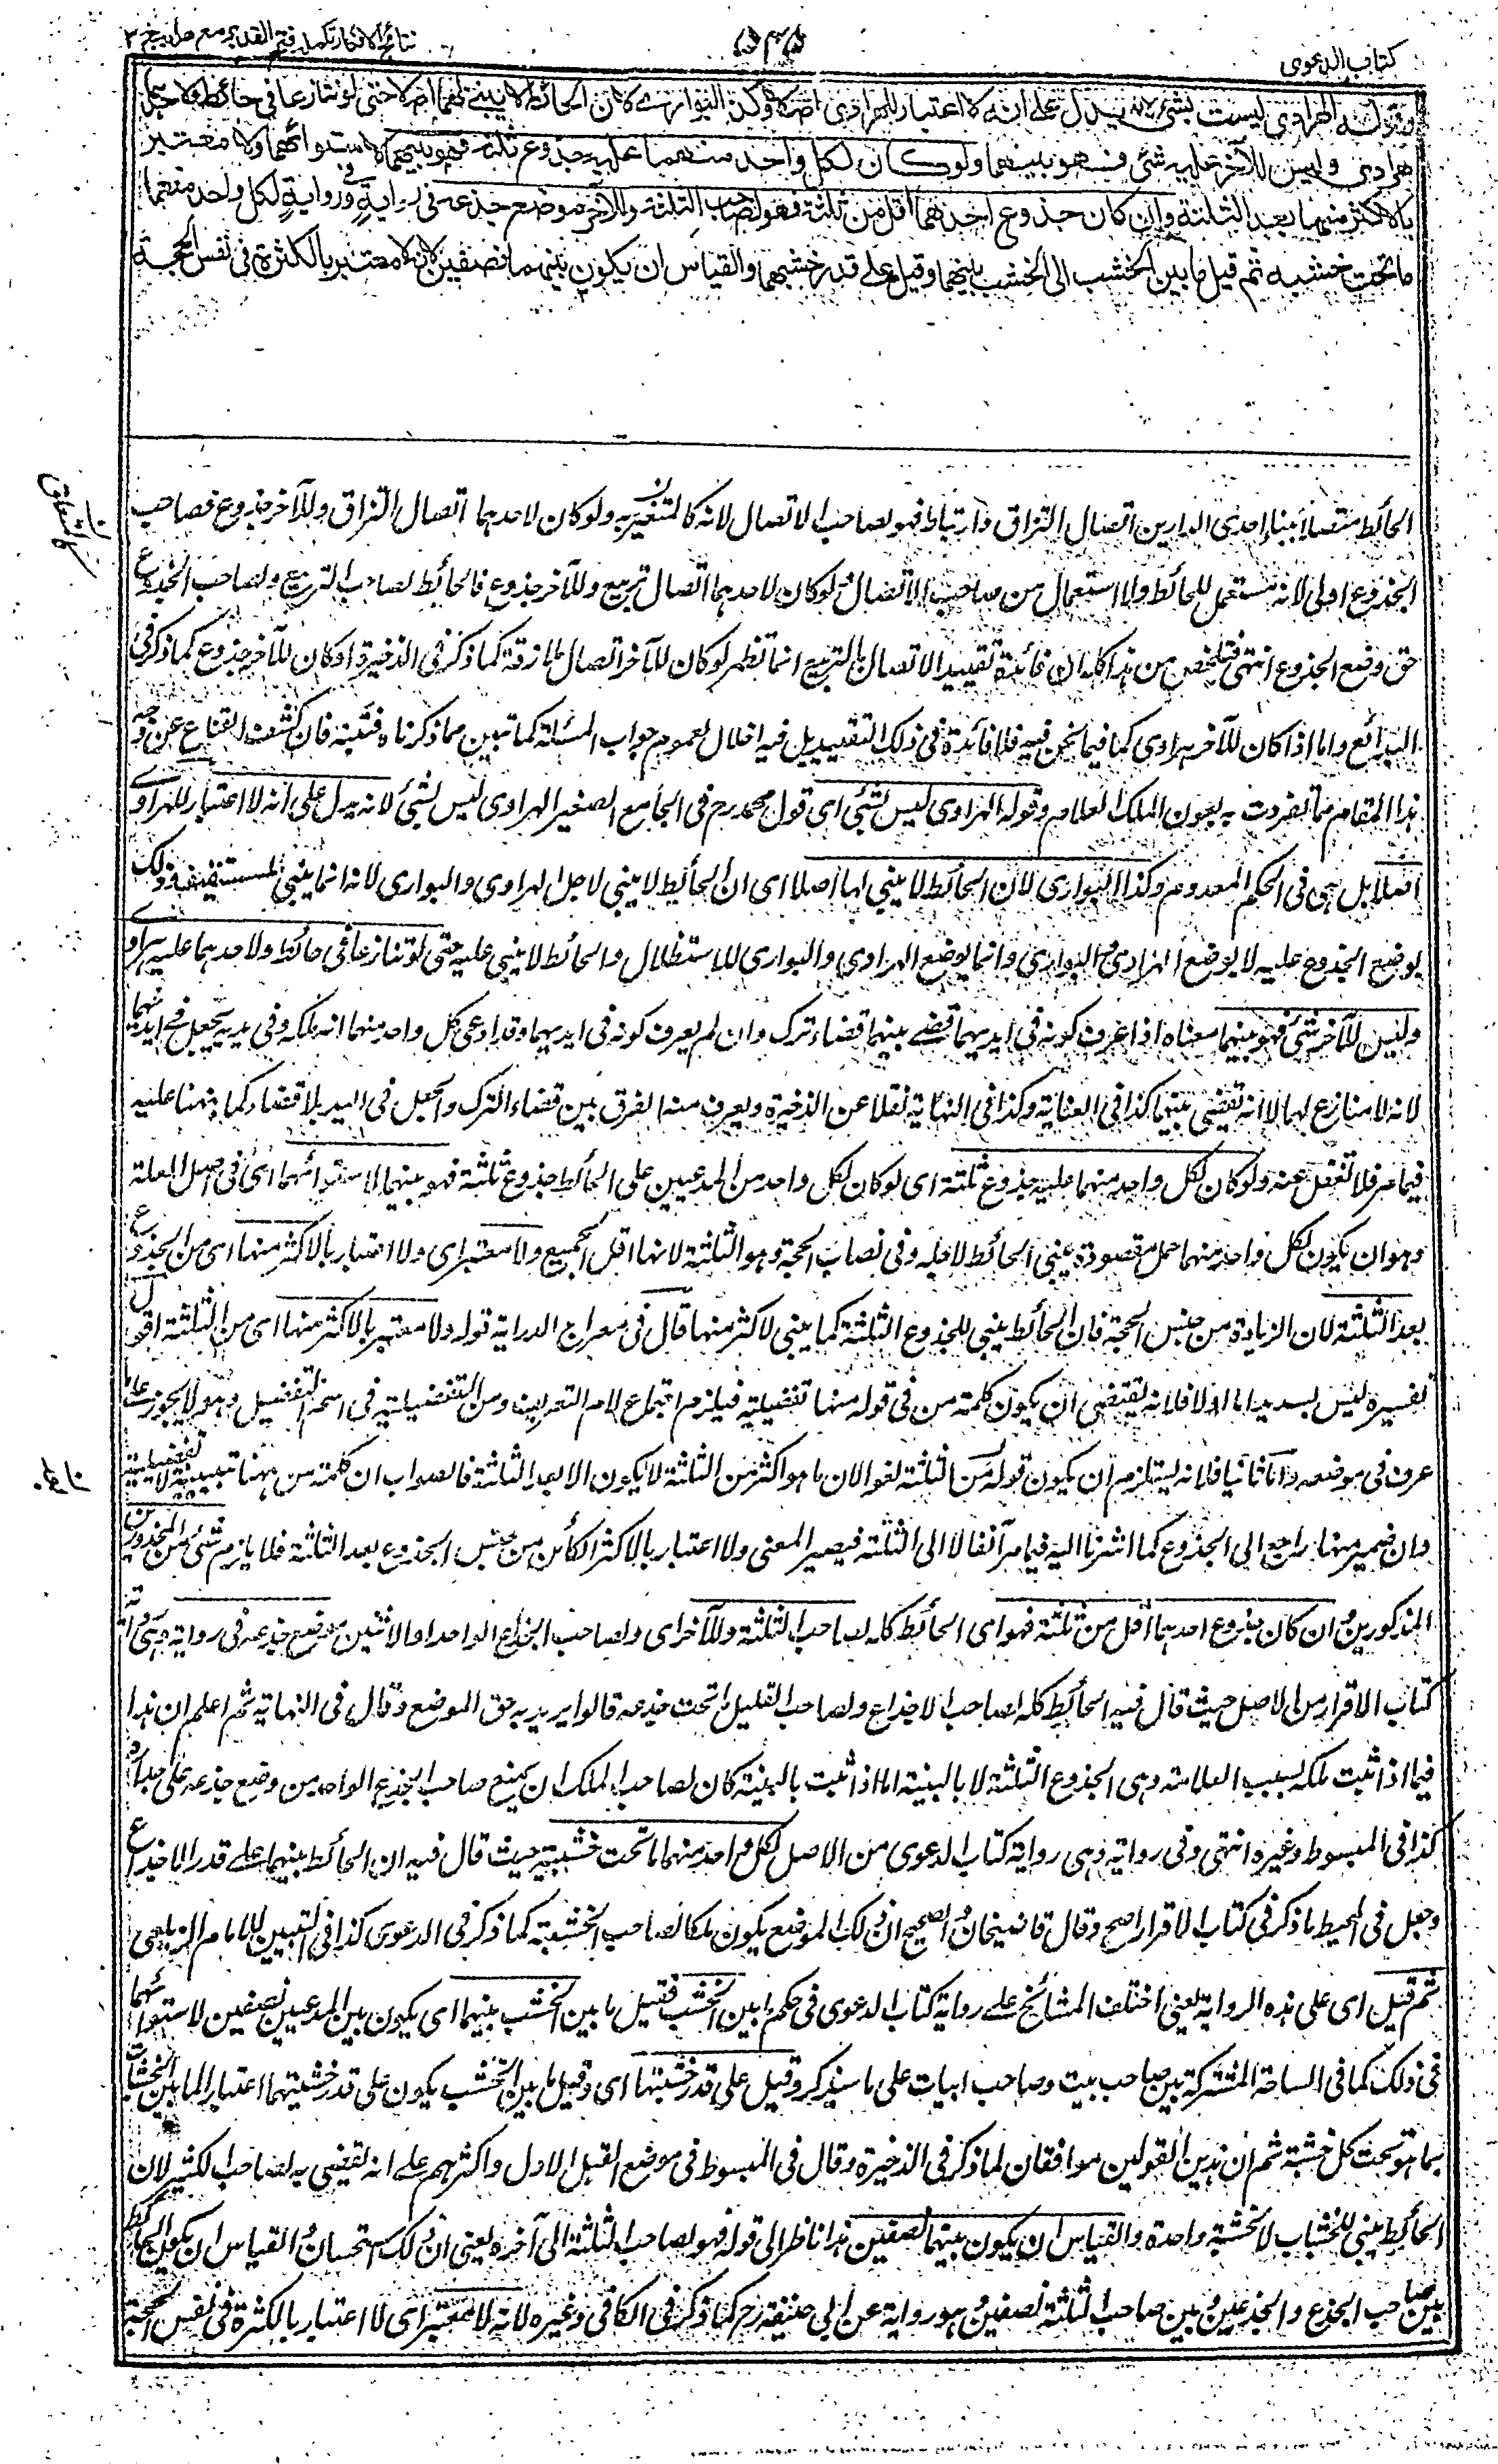 كتاب الدعوى
نتائج الافكار تكملہ فتح القدير مع ھدايہ ج ٣
وقوله الهرادي ليست بشئ لانه يدل على انه لا اعتبار للهرادي اصلا وكذا البواري لان الحائط لا يبنى لهما اصلا حتى لو تنازعا في حائط ولاحدهما
هرادي وليس للآخر عليه شئ فهو بينهما ولو كان لكل واحد منهما عليه جذوع ثلثة فهو بينهما لاستوائهما ولا معتبر
بالاكثر منهما بعد الثلثة وان كان جذوع احدهما اقل من ثلثة فهو لصاحب الثلثة وللآخر موضع جذعه في رواية وفي رواية لكل واحد منهما
ما تحت خشبه ثم قيل ما بين الخشب الى الخشب بينهما وقيل على قدر خشبهما والقياس ان يكون بينهما نصفين لانه لا معتبر بالكثرة في نفس الحجة
الحائط متصلا ببناء احدى الدارين اتصال التزاق وارتباط فهو لصاحب الاتصال لانه كالمتغير به ولو كان لاحدهما اتصال التزاق وللآخر جذوع فصاحب
الجذوع اولى لانه مستعمل للحائط ولا استعمال من صاحب الاتصال ولو كان لاحدهما اتصال تربيع وللآخر جذوع فالحائط لصاحب التربيع ولصاحب الجذوع
حق وضع الجذوع انتهى فتلخص من هذا كله ان فائدة تقييد الاتصال بالتربيع انما تظهر لو كان للآخر اتصال ملازقة كما ذكر في الذخيرة او كان للآخر جذوع كما ذكر في
البدائع واما اذا كان للآخر هرادي كما فيما نحن فيه فلا فائدة في ذلك التقييد بل فيه اخلال لعموم جواب المسئلة كما تبين مما ذكرناه فتنبه فان كشف القناع عن وجه
هذا المقام مما تفردت به بعون الملك العلام وقوله الهرادي ليس بشئ اي قول محمد رح في الجامع الصغير الهرادي ليس بشئ لانه يدل على انه لا اعتبار للهرادي
اصلا بل هي في الحكم المعدوم وكذا البواري لان الحائط لا يبنى لها اصلا اي ان الحائط لا يبنى لاجل الهرادي والبواري لانه انما يبنى للتسقيف وذلك
بوضع الجذوع عليه لا بوضع الهرادي والبواري وانما يوضع الهرادي والبواري للاستظلال والحائط لا يبنى عليه حتى لو تنازعا في حائط ولاحدهما عليه هرادي
وليس للآخر شئ فهو بينهما معناه اذا عرف كونه في ايديهما قضي بينهما قضاء ترك وان لم يعرف كونه في ايديهما وقد ادعى كل واحد منهما انه ملكه وفي يديه يجعل في ايديهما
لانه لا منازع لهما لا انه يقضى بينهما كذا في العناية وكذا في النهاية نقلا عن الذخيرة ويعرف منه الفرق بين قضاء الترك والجعل في اليد بلا قضاء كما نبهنا عليه
فيما مر فلا تغفل عنه ولو كان لكل واحد منهما عليه جذوع ثلثة اي لو كان لكل واحد من المدعيين على الحائط جذوع ثلثة فهو بينهما لاستوائهما اي في اصل العلة
وهو ان يكون لكل واحد منهما حمل مقصود يبنى الحائط لاجله وفي نصاب الحجة وهو الثلثة لانها اقل الجميع ولا معتبر اي ولا اعتبار بالاكثر منها اي من الجذوع
بعد الثلثة لان الزيادة من جنس الحجة فان الحائط يبنى للجذوع الثلثة كما يبنى لاكثر منها قال في معراج الدراية قوله ولا معتبر بالاكثر منها اي من الثلثة اقول
تفسيره ليس بسديد اما اولا فلانه يقتضي ان يكون كلمة من في قوله منها تفضيلية فيلزم اجتماع لام التعريف ومن التفضيلية في اسم التفضيل وهو لا يجوز على ما
عرف في موضعه واما ثانيا فلانه يستلزم ان يكون قوله بعد الثلثة لغوا لان ما هو اكثر من الثلثة لا يكون الا بعد الثلثة فالصواب ان كلمة من ههنا تبيينية لا تفضيلية
وان ضمير منها راجع الى الجذوع كما اشرنا اليه فيما مر آنفا لا الى الثلثة فيصير المعنى ولا اعتبار بالاكثر الكائن من جنس الجذوع بعد الثلثة فلا يلزم شئ من المحذورين
المذكورين وان كان جذوع احدهما اقل من ثلثة فهو اي الحائط كله لصاحب الثلثة وللآخر اي ولصاحب الجذع الواحد او الاثنين موضع جذعه في رواية وهي رواية
كتاب الاقرار من الاصل حيث قال فيه الحائط كله لصاحب الاجذاع ولصاحب القليل ما تحت جذعه قالوا يريد به حق الموضع وقال في النهاية ثم اعلم ان هذا
فيما اذا ثبت ملكه بسبب العلامة وهي الجذوع الثلثة لا بالبينة اما اذا ثبت بالبينة كان لصاحب الملك ان يمنع صاحب الجذع الواحد من وضع جذعه على جداره
كذا في المبسوط وغيره انتهى وفي رواية وهي رواية كتاب الدعوى من الاصل لكل واحد منهما ما تحت خشبته حيث قال فيه ان الحائط بينهما على قدر الاجذاع
وجعل في المحيط ما ذكر في كتاب الاقرار اصح وقال قاضيخان والصحيح ان ذلك الموضع يكون ملكا لصاحب الخشبة كما ذكر في الدعوى كذا في التبيين للامام الزيلعي
ثم قيل اي على هذه الرواية يعني اختلف المشائخ على رواية كتاب الدعوى في حكم ما بين الخشب فقيل ما بين الخشب بينهما اي يكون بين المدعيين نصفين لاستوائهما
في ذلك كما في الساحة المشتركة بين صاحب بيت وصاحب ابيات على ما سيذكر وقيل على قدر خشبهما اي وقيل ما بين الخشب يكون على قدر خشبتيهما اعتبارا لما بين الخشبات
بما هو تحت كل خشبة ثم ان هذين القولين موافقان لما ذكر في الذخيرة وقال في المبسوط في موضع القيل الاول واكثرهم على انه يقضى به لصاحب الكثير لان
الحائط يبنى للخشاب لا لخشبة واحدة والقياس ان يكون بينهما نصفين هذا ناظر الى قوله فهو لصاحب الثلثة الى آخره يعني ان ذلك استحسان والقياس ان يكون الحائط
بين صاحب الجذع والجذعين وبين صاحب الثلثة نصفين وهو رواية عن ابي حنيفة رح كما ذكر في الكافي وغيره لانه لا معتبر اي لا اعتبار بالكثرة في نفس الحجة